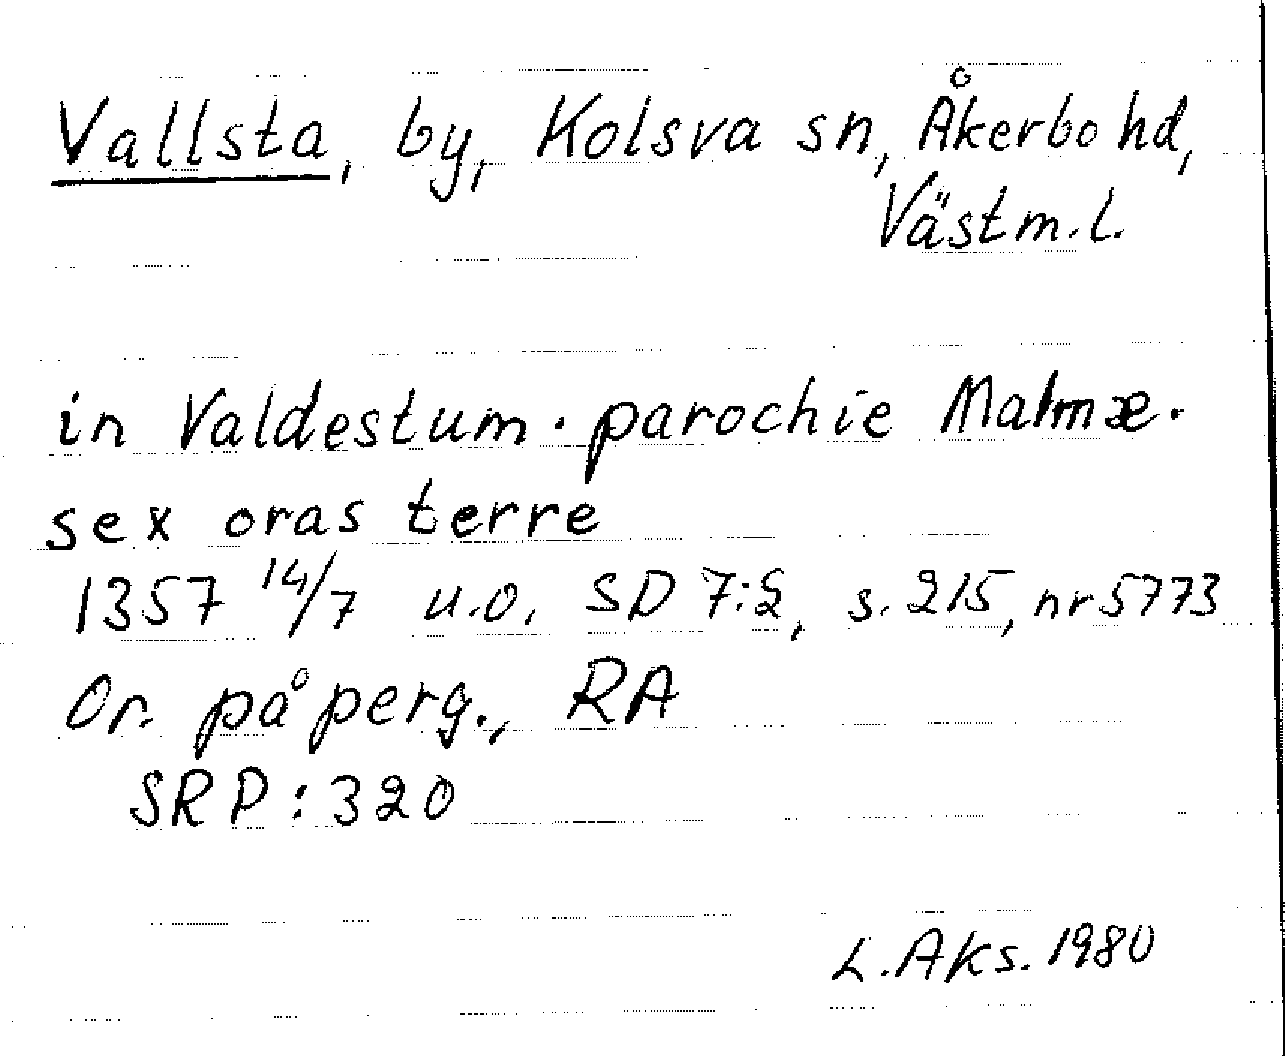 Vallsta, by, Kolsva sn, Åkerbo hd,
Västm. l.
in Valdestum · parochie Malmæ ·
sex oras terre
1357 14/7 u.o. SD 7:2, s. 215, nr 5773
Or. på perg., RA
SRP: 320
L. Aks. 1980